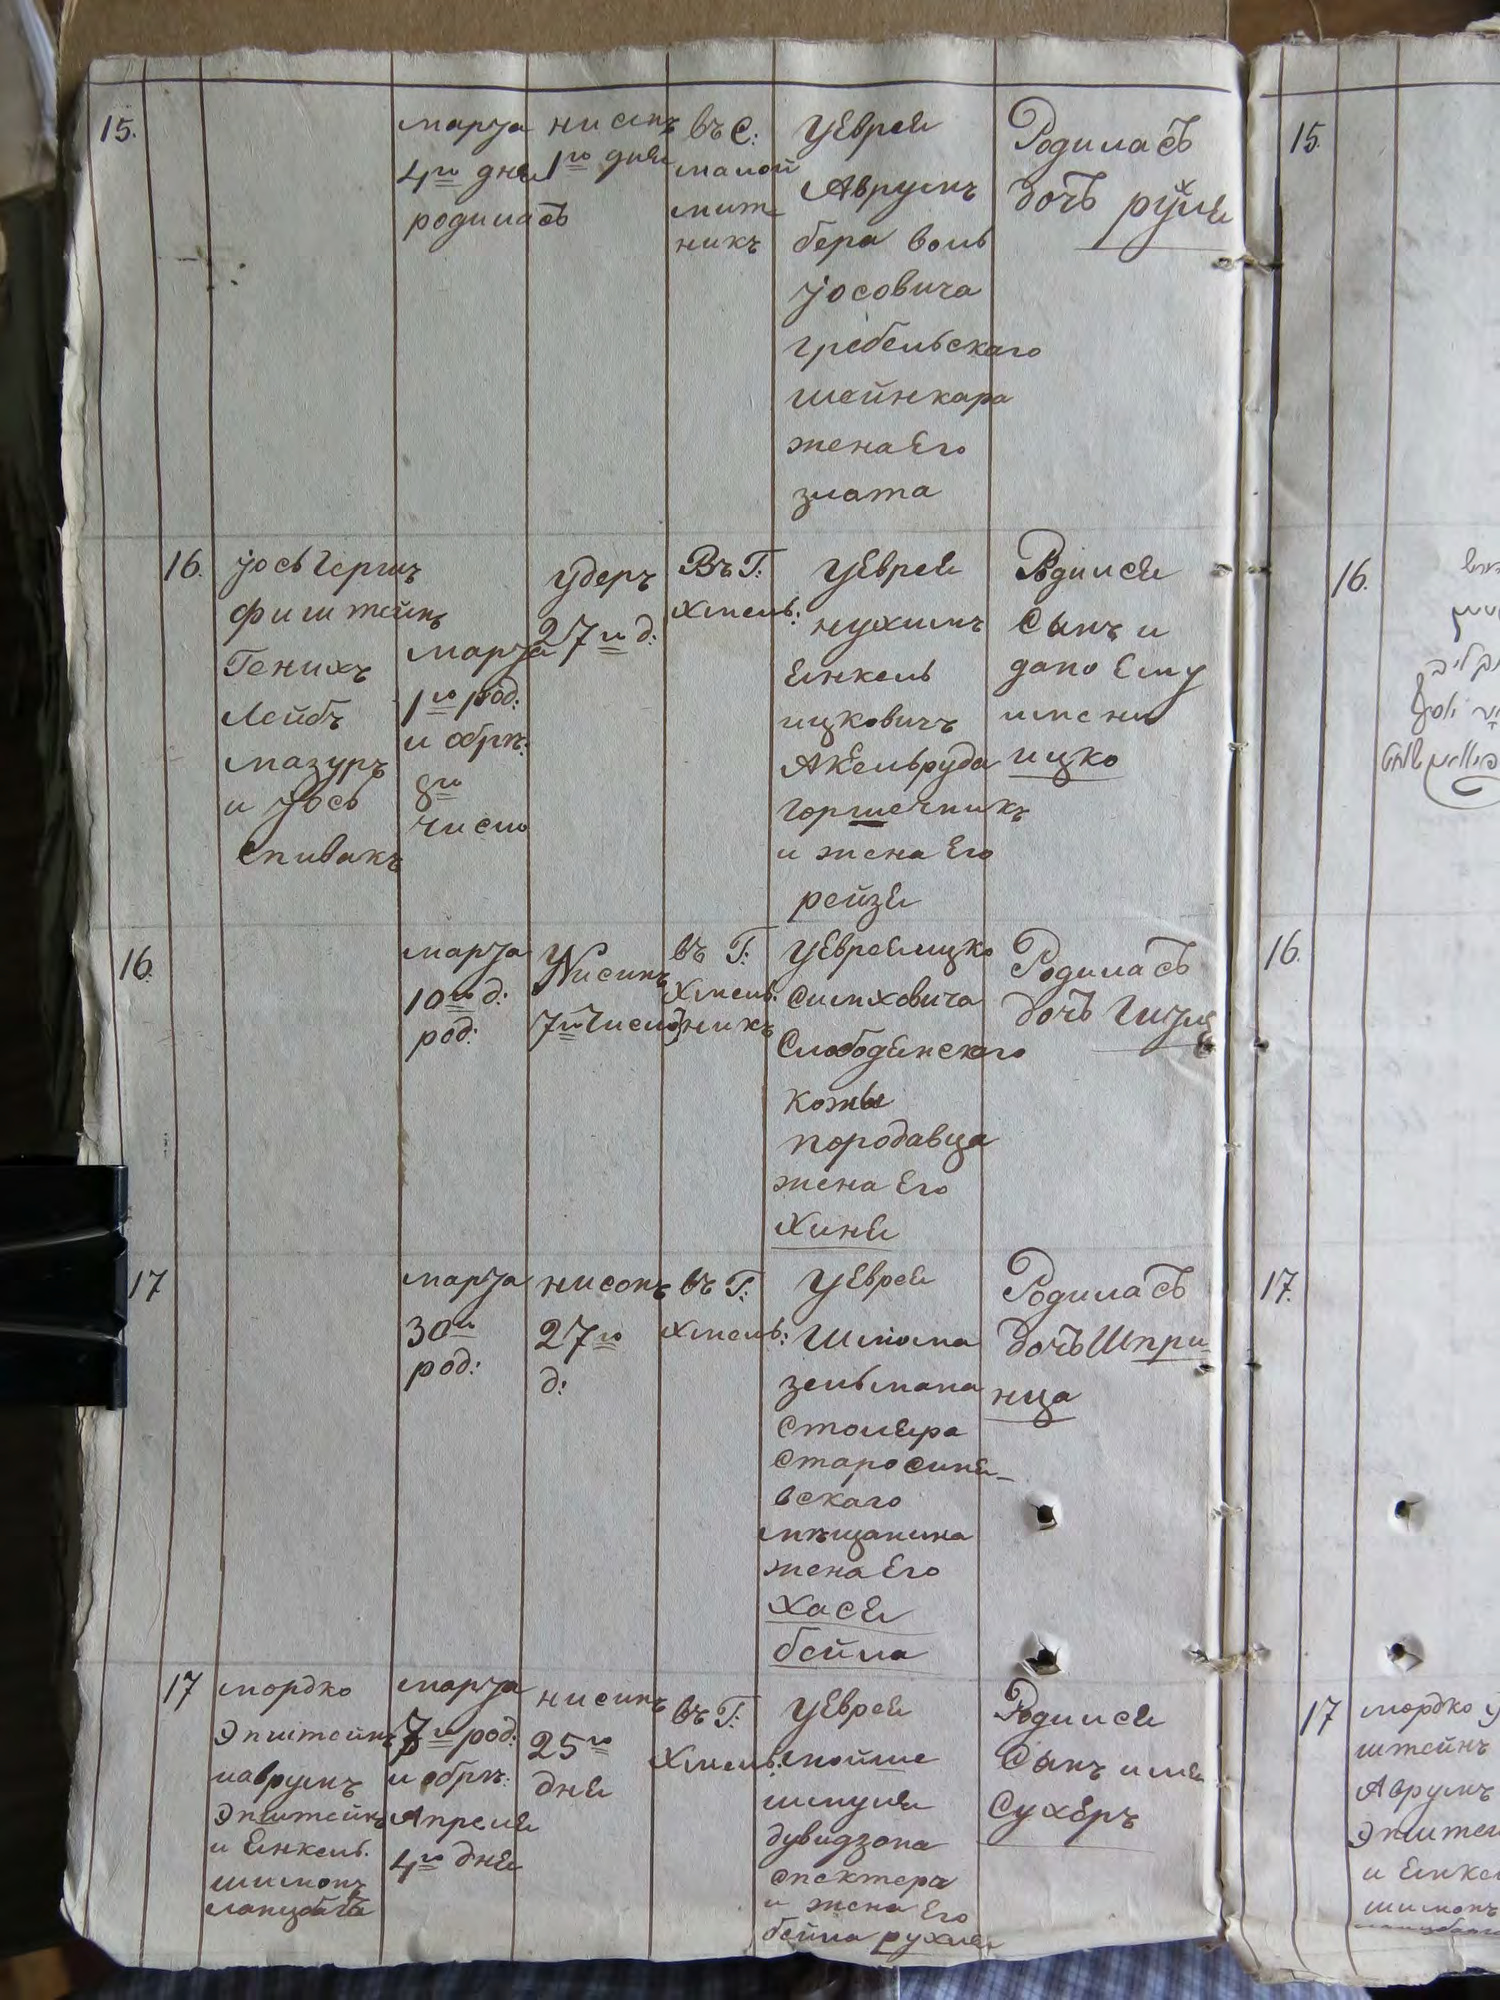 15.
марта
4го дня
родилась
нисанъ
1го дня
въ С:
малой
мит
никъ
уЕврея
Аврумъ
бера воль
уосовича
гребельскаго
шейнкара
жена Его
злата
Родилась
дочь рухля
15.
16.
уось Герш
фиштейнъ
Генихъ
Лейбъ
мазуръ
и уось
спивакъ
марта
1го род:
и обрѣ:
8го
число
удеръ
27го д:
Въ Г:
хмель:
уЕврея
нухимъ
Енкель
ицковичъ
горшечникъ
и жена Его
рейзя
Родился
сынъ и
дано Ему
имение
ицко
16.
16.
марта
10го д:
род:
Нисанъ
7го число
въ Г:
хмель:
никъ
уЕврея ицко
симховича
Слободянскаго
кожы
породавца
жена Его
Хиня
Родилась
дочь
16.
17
марта
30го
род:
нисонъ
27го
д:
въ Г:
хмель:
уЕврея
Шлиома
зельмана
столяра
старосиня-
вскаго
мѣщанина
жена Его
хася
бейла
Родилась
дочь Шпри-
нца
17.
17
мордко
Эпштейнъ
иаврумъ
Эпштейнъ
и Енкель.
шимонъ
марта
7го род:
и обрѣ:
Апреля
4го дня
нисинъ
25го
дня
въ Г:
Хмель:
уЕврея
мойше
шмуля
дувидзона
спектера
и жена Его
бейла рухля
Родился
сынъ имя
сухеръ
17
мордко
штейнъ
Аврумъ
Эпштей
и Енкел
шимонъ